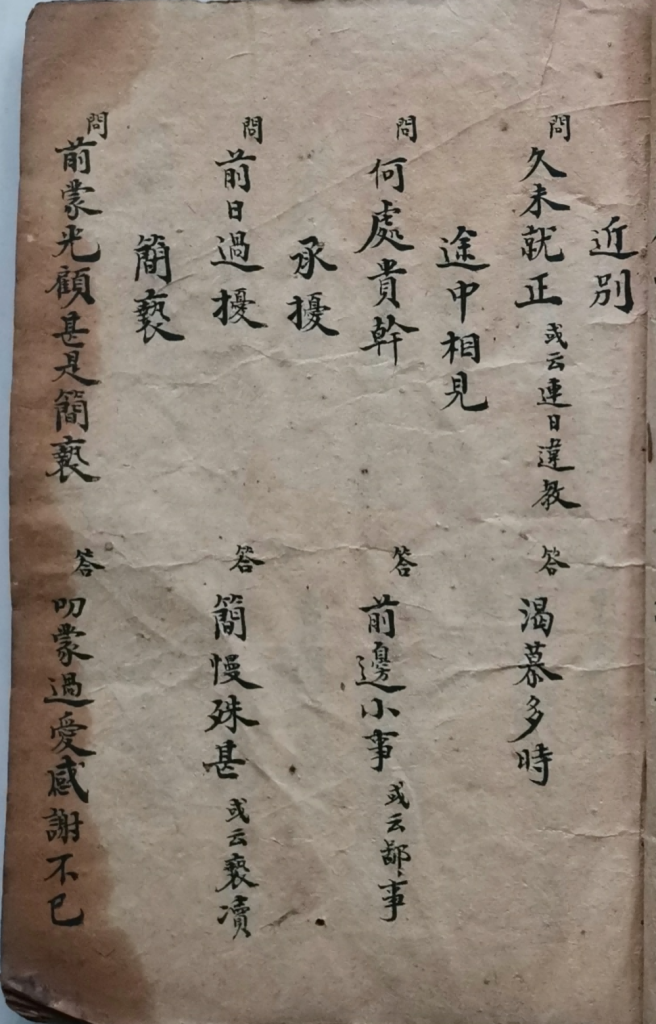 近別
問 久未就正 或云連日違教 答 渴慕多時
途中相見
問 何處貴幹 答 前邊小事 或云鄙事
承擾
問 前日過擾 答 簡慢殊甚 或云褻凟
簡褻
問 前蒙光顧甚是簡褻 答 叨蒙過愛感謝不已